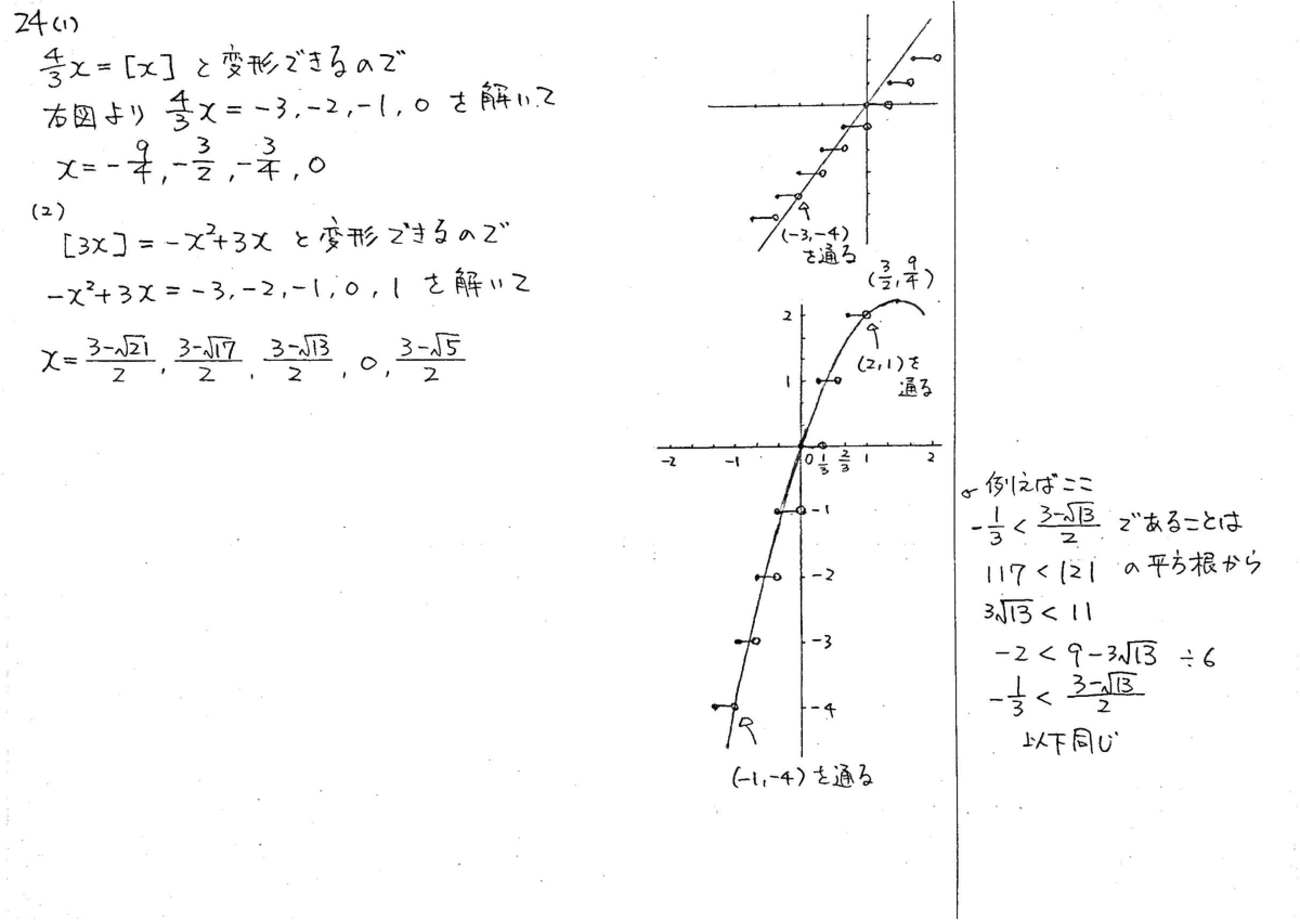 24(1)
4/3 x = [x] と変形できるので
右図より 4/3 x = -3, -2, -1, 0 を解いて
x = -9/4, -3/2, -3/4, 0
(2)
[3x] = -x²+3x と変形できるので
-x²+3x = -3, -2, -1, 0, 1 を解いて
x = (3-√21)/2, (3-√17)/2, (3-√13)/2, 0, (3-√5)/2
(-3,-4)
を通る
(3/2, 9/4)
2
(2,1)を
通る
1
-2 -1 0 1/3 2/3 1 2
-1
-2
-3
-4
(-1,-4)を通る
例えばここ
-1/3 < (3-√13)/2 であることは
117 < 121 の平方根から
3√13 < 11
-2 < 9-3√13 ÷6
-1/3 < (3-√13)/2
以下同じ